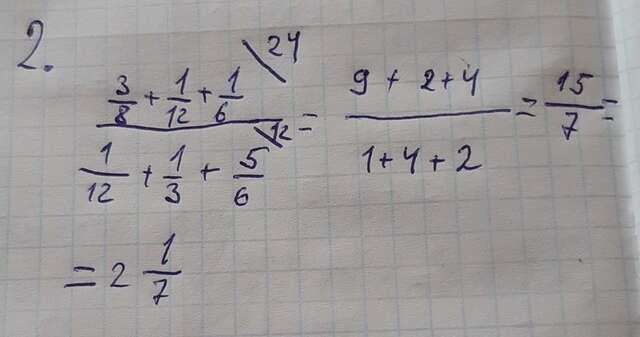 2.
(3/8 + 1/12 + 1/6 \24) / (1/12 + 1/3 + 5/6 \12) = (9 + 2 + 4) / (1 + 4 + 2) = 15/7 =
= 2 1/7